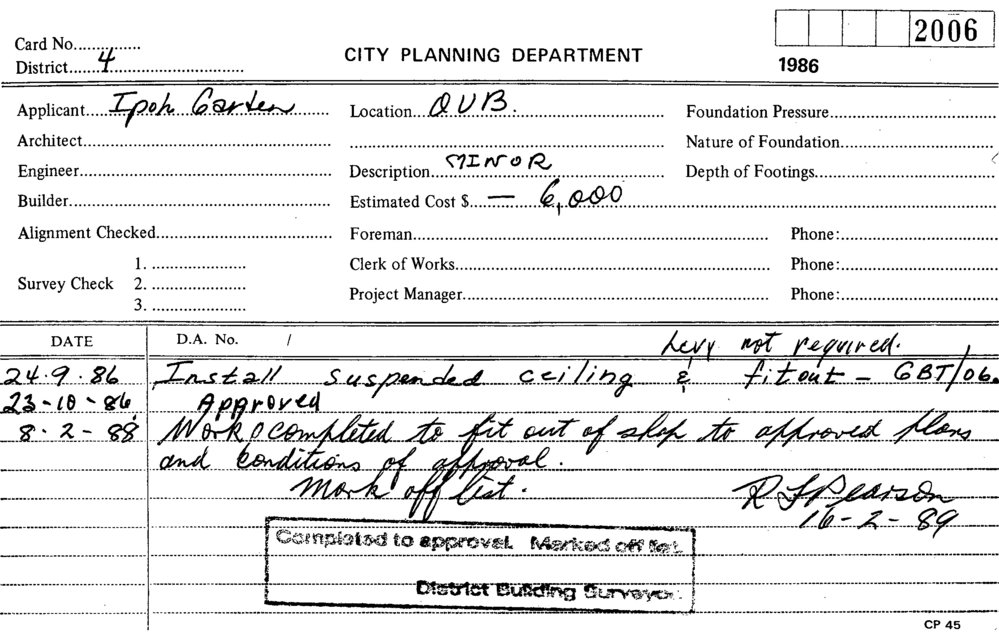 2006
Card No...............
CITY PLANNING DEPARTMENT
District......4...........................
1986
Applicant....Ipoh Garten.......
Location...QVB.
Foundation Pressure...................................
Architect..................................................
Nature of Foundation.................................
Engineer..................................................
Description...MINOR..................
Depth of Footings.....................................
Builder....................................................
Estimated Cost $...— 6,000..........
Alignment Checked...................................
Foreman.................................................................. Phone:................................
Survey Check 1. .....................
Clerk of Works.......................................................... Phone:................................
2. .....................
Project Manager........................................................ Phone:................................
3. .....................
DATE D.A. No. /
Levy not required.
24.9.86 Install suspended ceiling & fitout — GBT/06.
23-10-86 Approved
8-2-88 Work completed to fit out of shop to approved plans
and conditions of approval.
Mark off list. R Pearson
16-2-89
Completed to approval. Marked off list.
District Building Surveyor.
CP 45